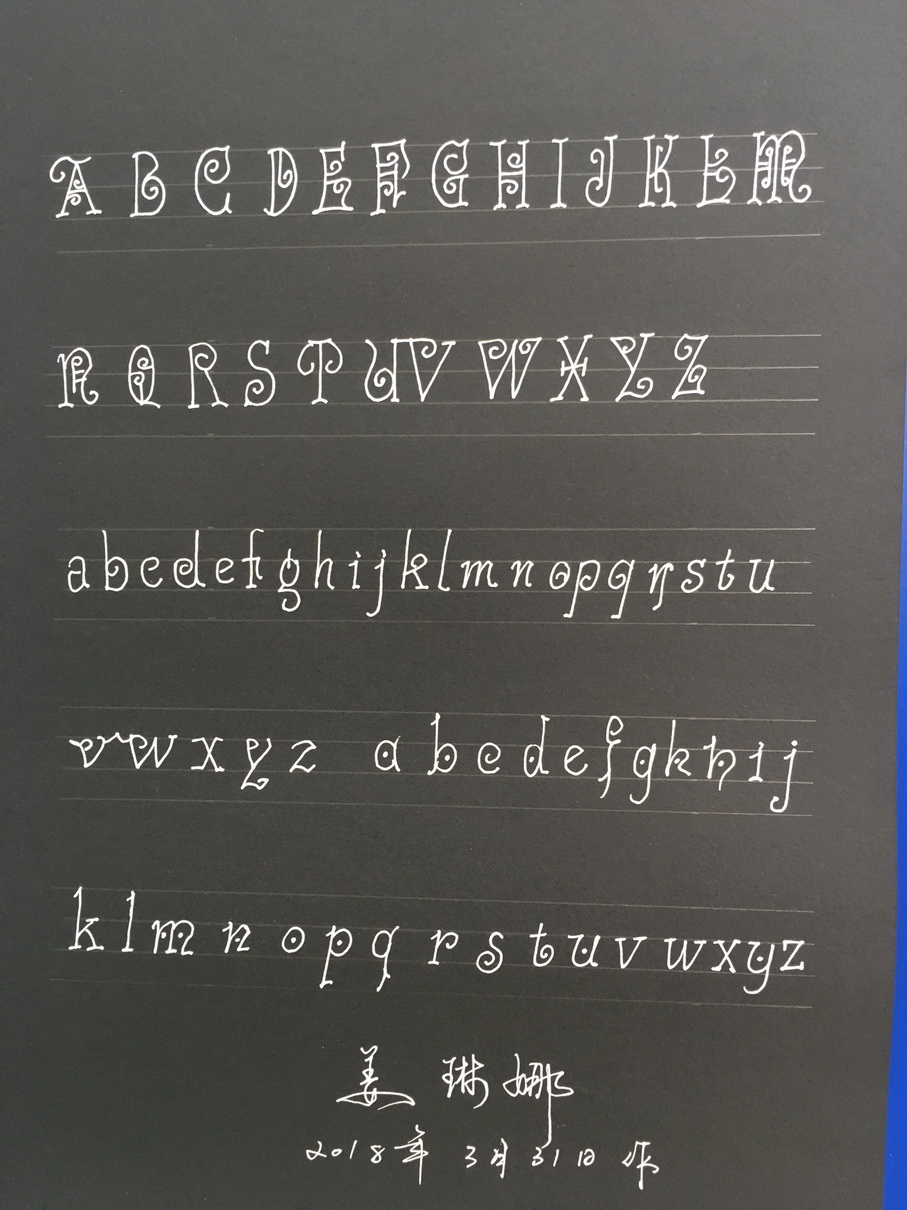 A B C D E F G H I J K L M
N Q R S T U V W X Y Z
a b c d e f g h i j k l m n o p q r s t u
v w x y z a b c d e f g k h i j
k l m n o p q r s t u v w x y z
姜 琳 娜
2018年 3月 31日 作